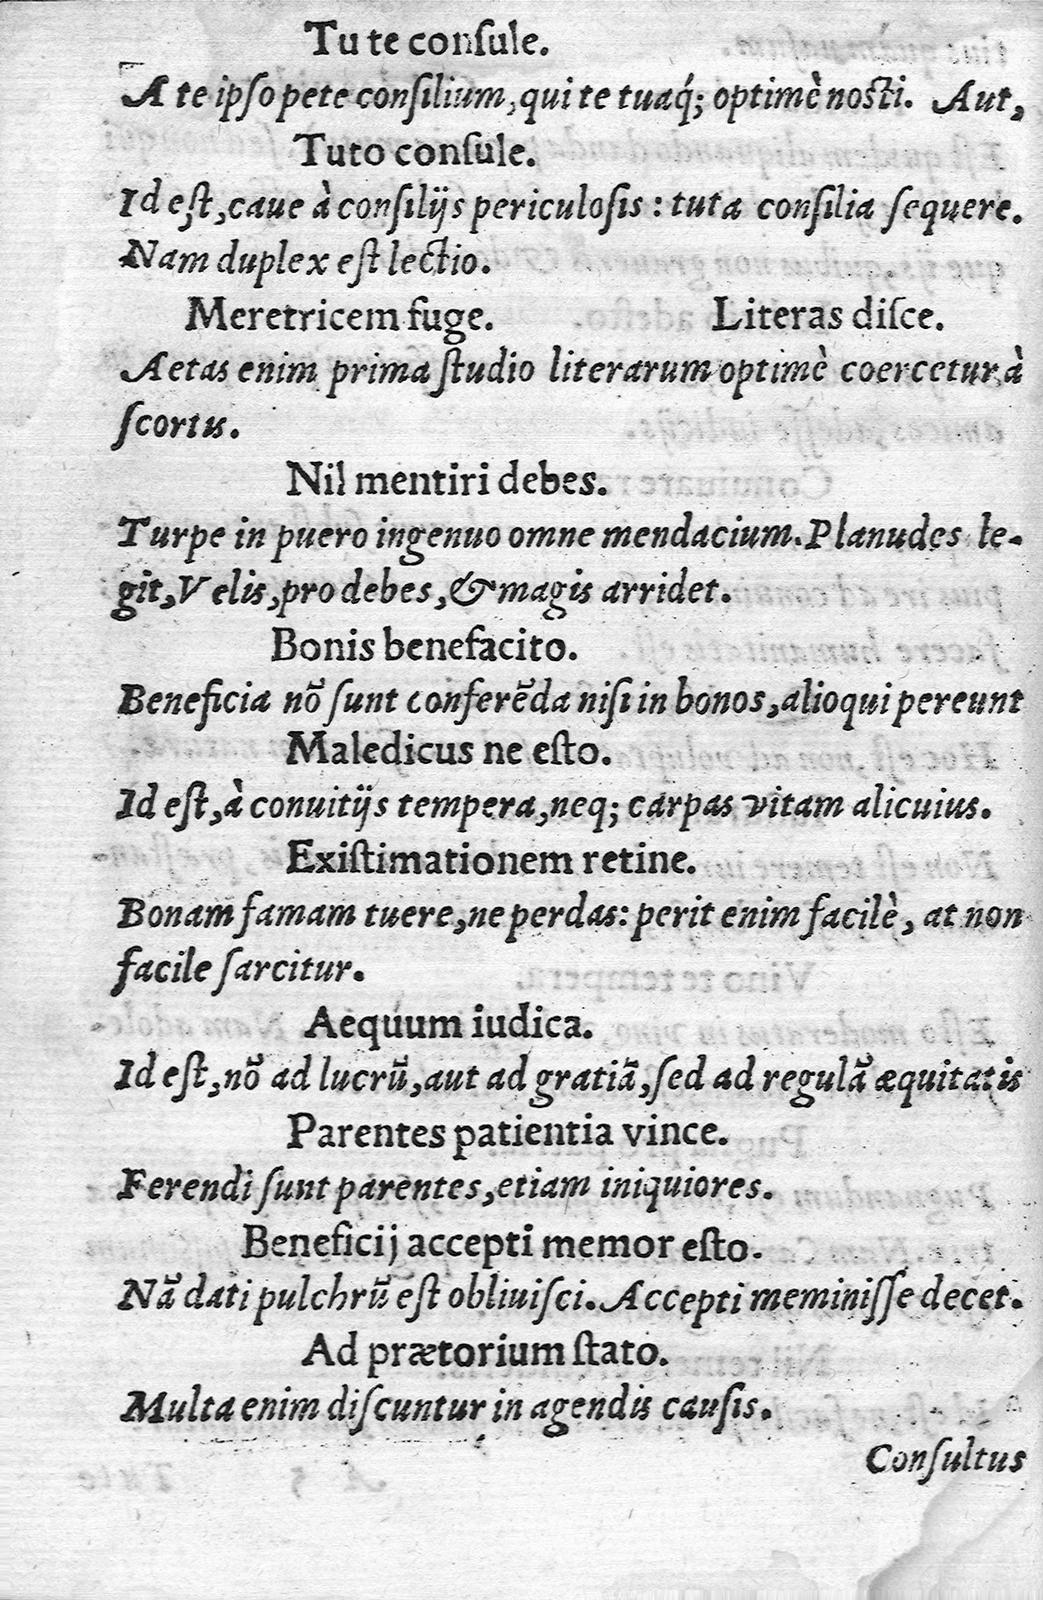 Tu te conſule.
A te ipſo pete conſilium, qui te tuaq́; optimè noſti. Aut,
Tuto conſule.
Id eſt, caue à conſilijs periculoſis : tuta conſilia ſequere.
Nam duplex eſt lectio.
Meretricem fuge. Literas diſce.
Aetas enim prima ſtudio literarum optimè coercetur à
ſcortis.
Nil mentiri debes.
Turpe in puero ingenuo omne mendacium. Planudes le-
git, Velis, pro debes, & magis arridet.
Bonis benefacito.
Beneficia nō ſunt conferēda niſi in bonos, alioqui pereunt
Maledicus ne eſto.
Id eſt, à conuitijs tempera, neq; carpas vitam alicuius.
Exiſtimationem retine.
Bonam famam tuere, ne perdas: perit enim facilè, at non
facile ſarcitur.
Aequum iudica.
Id eſt, nō ad lucrū, aut ad gratiā, ſed ad regulā æquitatis
Parentes patientia vince.
Ferendi ſunt parentes, etiam iniquiores.
Beneficij accepti memor eſto.
Nā dati pulchrū eſt obliuiſci. Accepti meminiſſe decet.
Ad prætorium ſtato.
Multa enim diſcuntur in agendis cauſis.
Conſultus